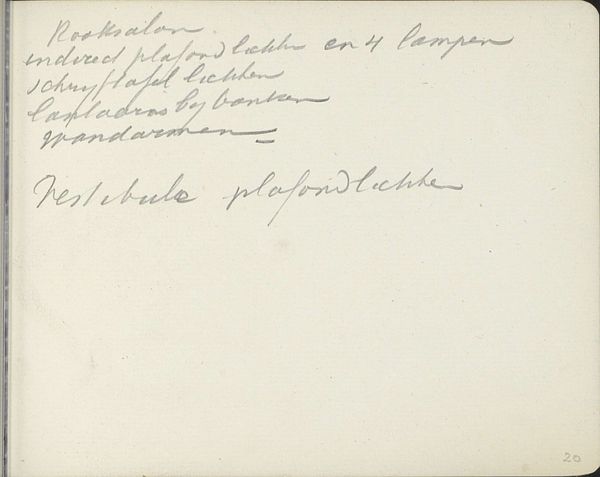 Rooksalon.
indirect plafond lichten en 4 lampen
schryftafel lichten
lantaarns by banken
Wandarmen
Vestibule plafondlichten
20